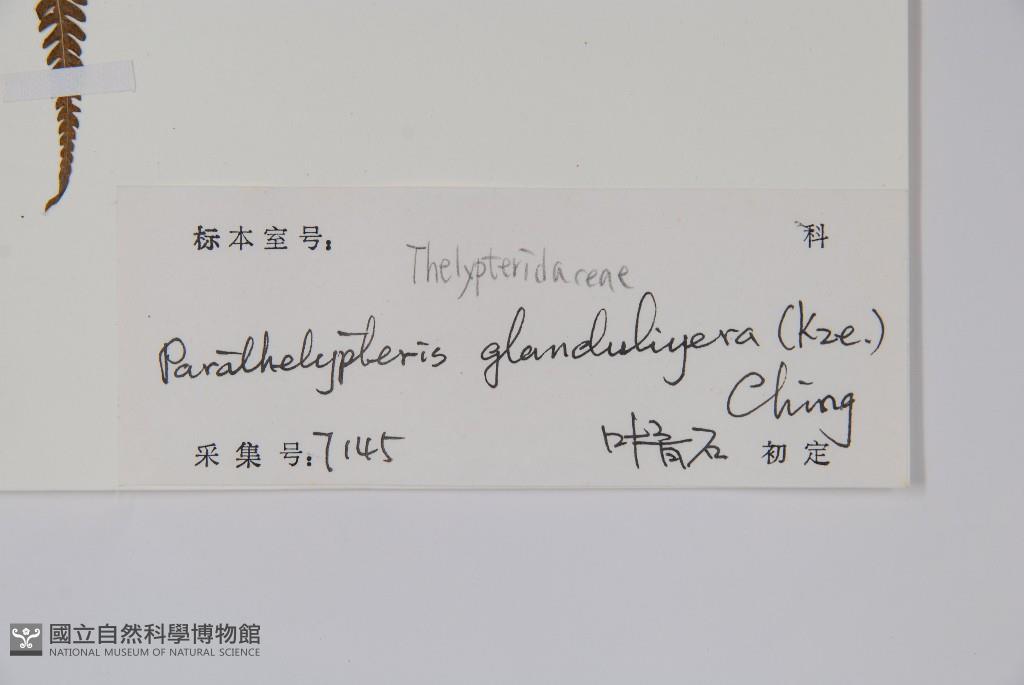 标本室号: 科
Thelypteridaceae
Parathelypteris glanduliyera (Kze.)
Ching
采集号: 7145 叶育石 初定
國立自然科學博物館
NATIONAL MUSEUM OF NATURAL SCIENCE